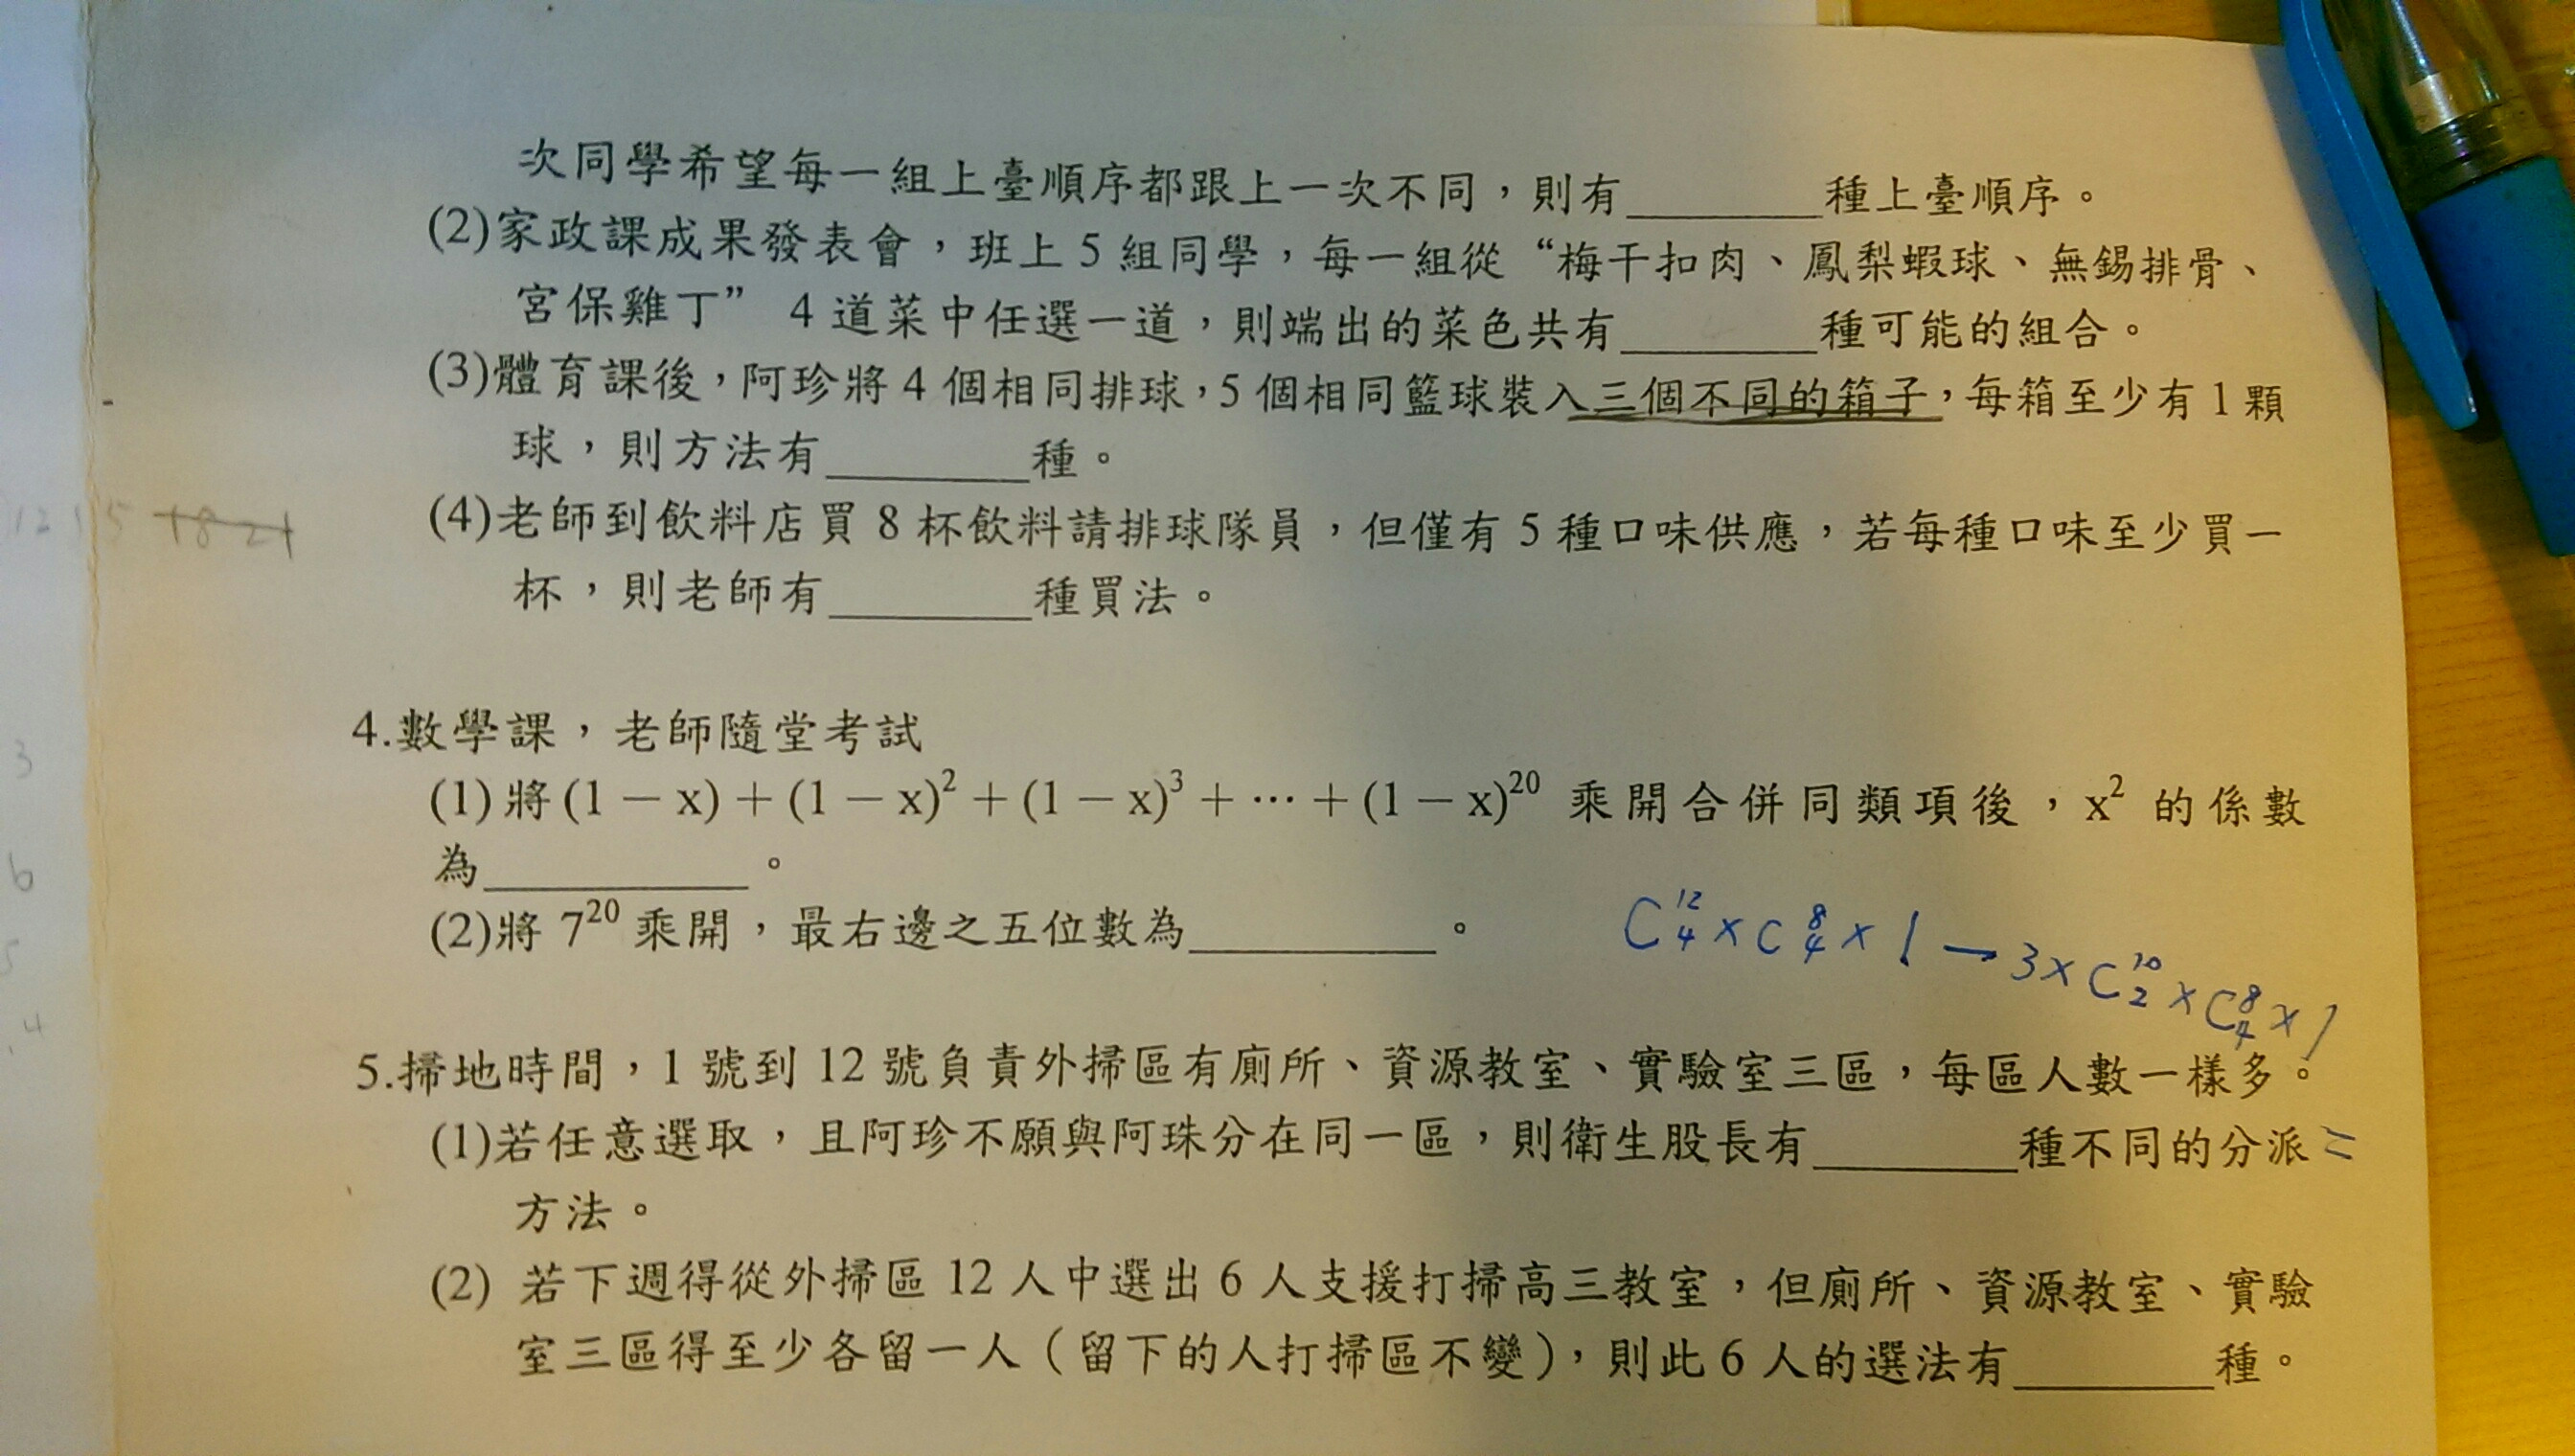 次同學希望每一組上臺順序都跟上一次不同，則有________種上臺順序。
(2)家政課成果發表會，班上 5 組同學，每一組從“梅干扣肉、鳳梨蝦球、無錫排骨、
宮保雞丁” 4 道菜中任選一道，則端出的菜色共有________種可能的組合。
(3)體育課後，阿珍將 4 個相同排球，5 個相同籃球裝入三個不同的箱子，每箱至少有 1 顆
球，則方法有________種。
(4)老師到飲料店買 8 杯飲料請排球隊員，但僅有 5 種口味供應，若每種口味至少買一
杯，則老師有________種買法。
12 15 18 21
4.數學課，老師隨堂考試
(1)將(1－x)＋(1－x)²＋(1－x)³＋⋯＋(1－x)²⁰ 乘開合併同類項後，x² 的係數
為__________。
(2)將 7²⁰ 乘開，最右邊之五位數為__________。
C¹²₄×C⁸₄×1－3×C¹⁰₂×C⁸₄×1
5.掃地時間，1 號到 12 號負責外掃區有廁所、資源教室、實驗室三區，每區人數一樣多。
(1)若任意選取，且阿珍不願與阿珠分在同一區，則衛生股長有________種不同的分派
=
方法。
(2) 若下週得從外掃區 12 人中選出 6 人支援打掃高三教室，但廁所、資源教室、實驗
室三區得至少各留一人（留下的人打掃區不變），則此 6 人的選法有________種。
3
6
5
4